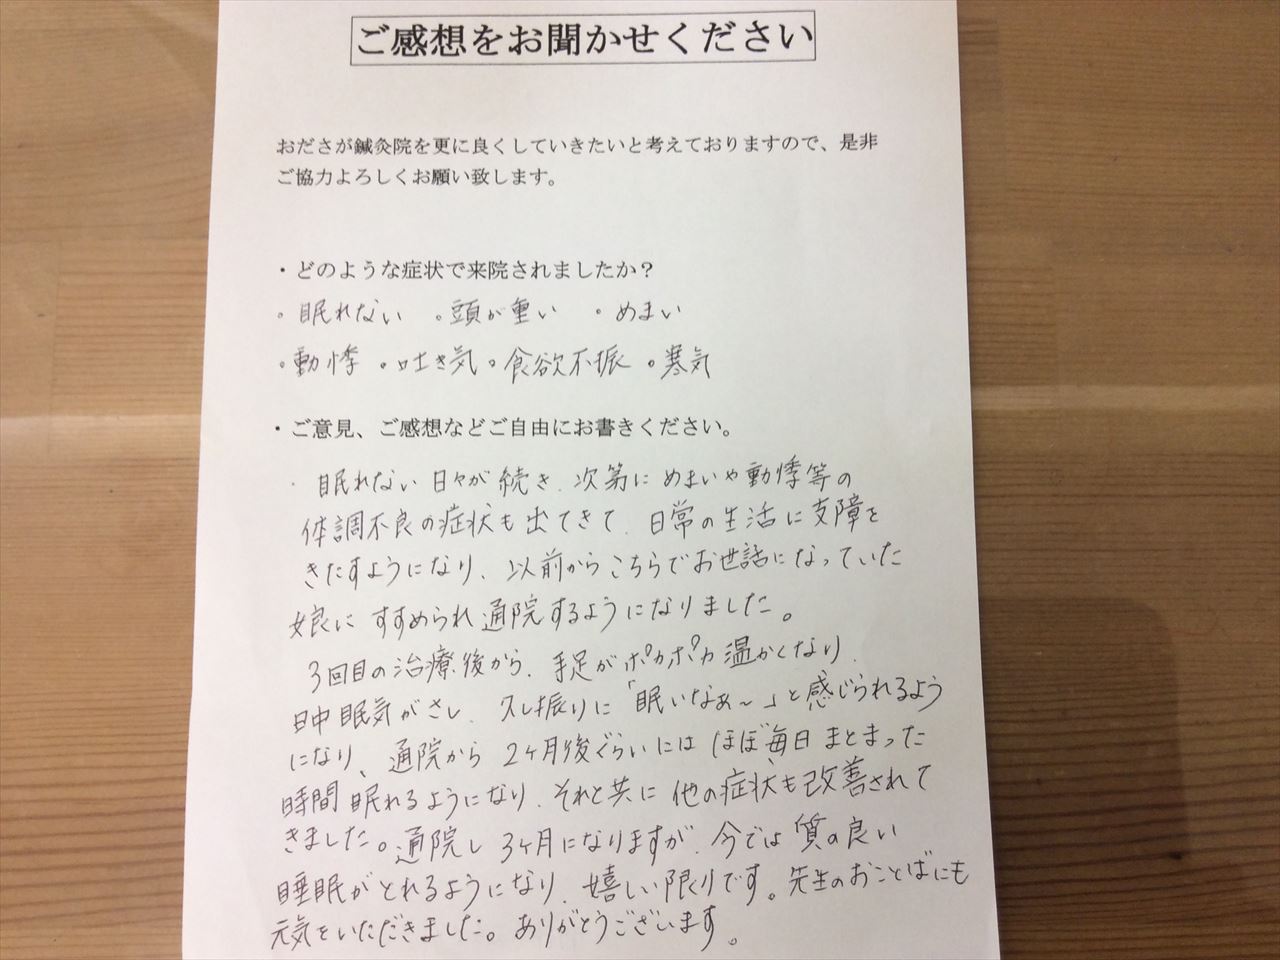 ご感想をお聞かせください
おださが鍼灸院を更に良くしていきたいと考えておりますので、是非
ご協力よろしくお願い致します。
・どのような症状で来院されましたか？
。眠れない 。頭が重い 。めまい
。動悸 。吐き気 。食欲不振 。寒気
・ご意見、ご感想などご自由にお書きください。
・眠れない日々が続き、次第にめまいや動悸等の
体調不良の症状も出てきて、日常の生活に支障を
きたすようになり、以前からこちらでお世話になっていた
娘にすすめられ通院するようになりました。
3回目の治療後から、手足がポカポカ温かくなり、
日中眠気がさし、久し振りに「眠いなぁ〜」と感じられるよう
になり、通院から2ヶ月後ぐらいにはほぼ毎日まとまった
時間眠れるようになり、それと共に他の症状も改善されて
きました。通院し3ヶ月になりますが、今では質の良い
睡眠がとれるようになり、嬉しい限りです。先生のおことばにも
元気をいただきました。ありがとうございます。